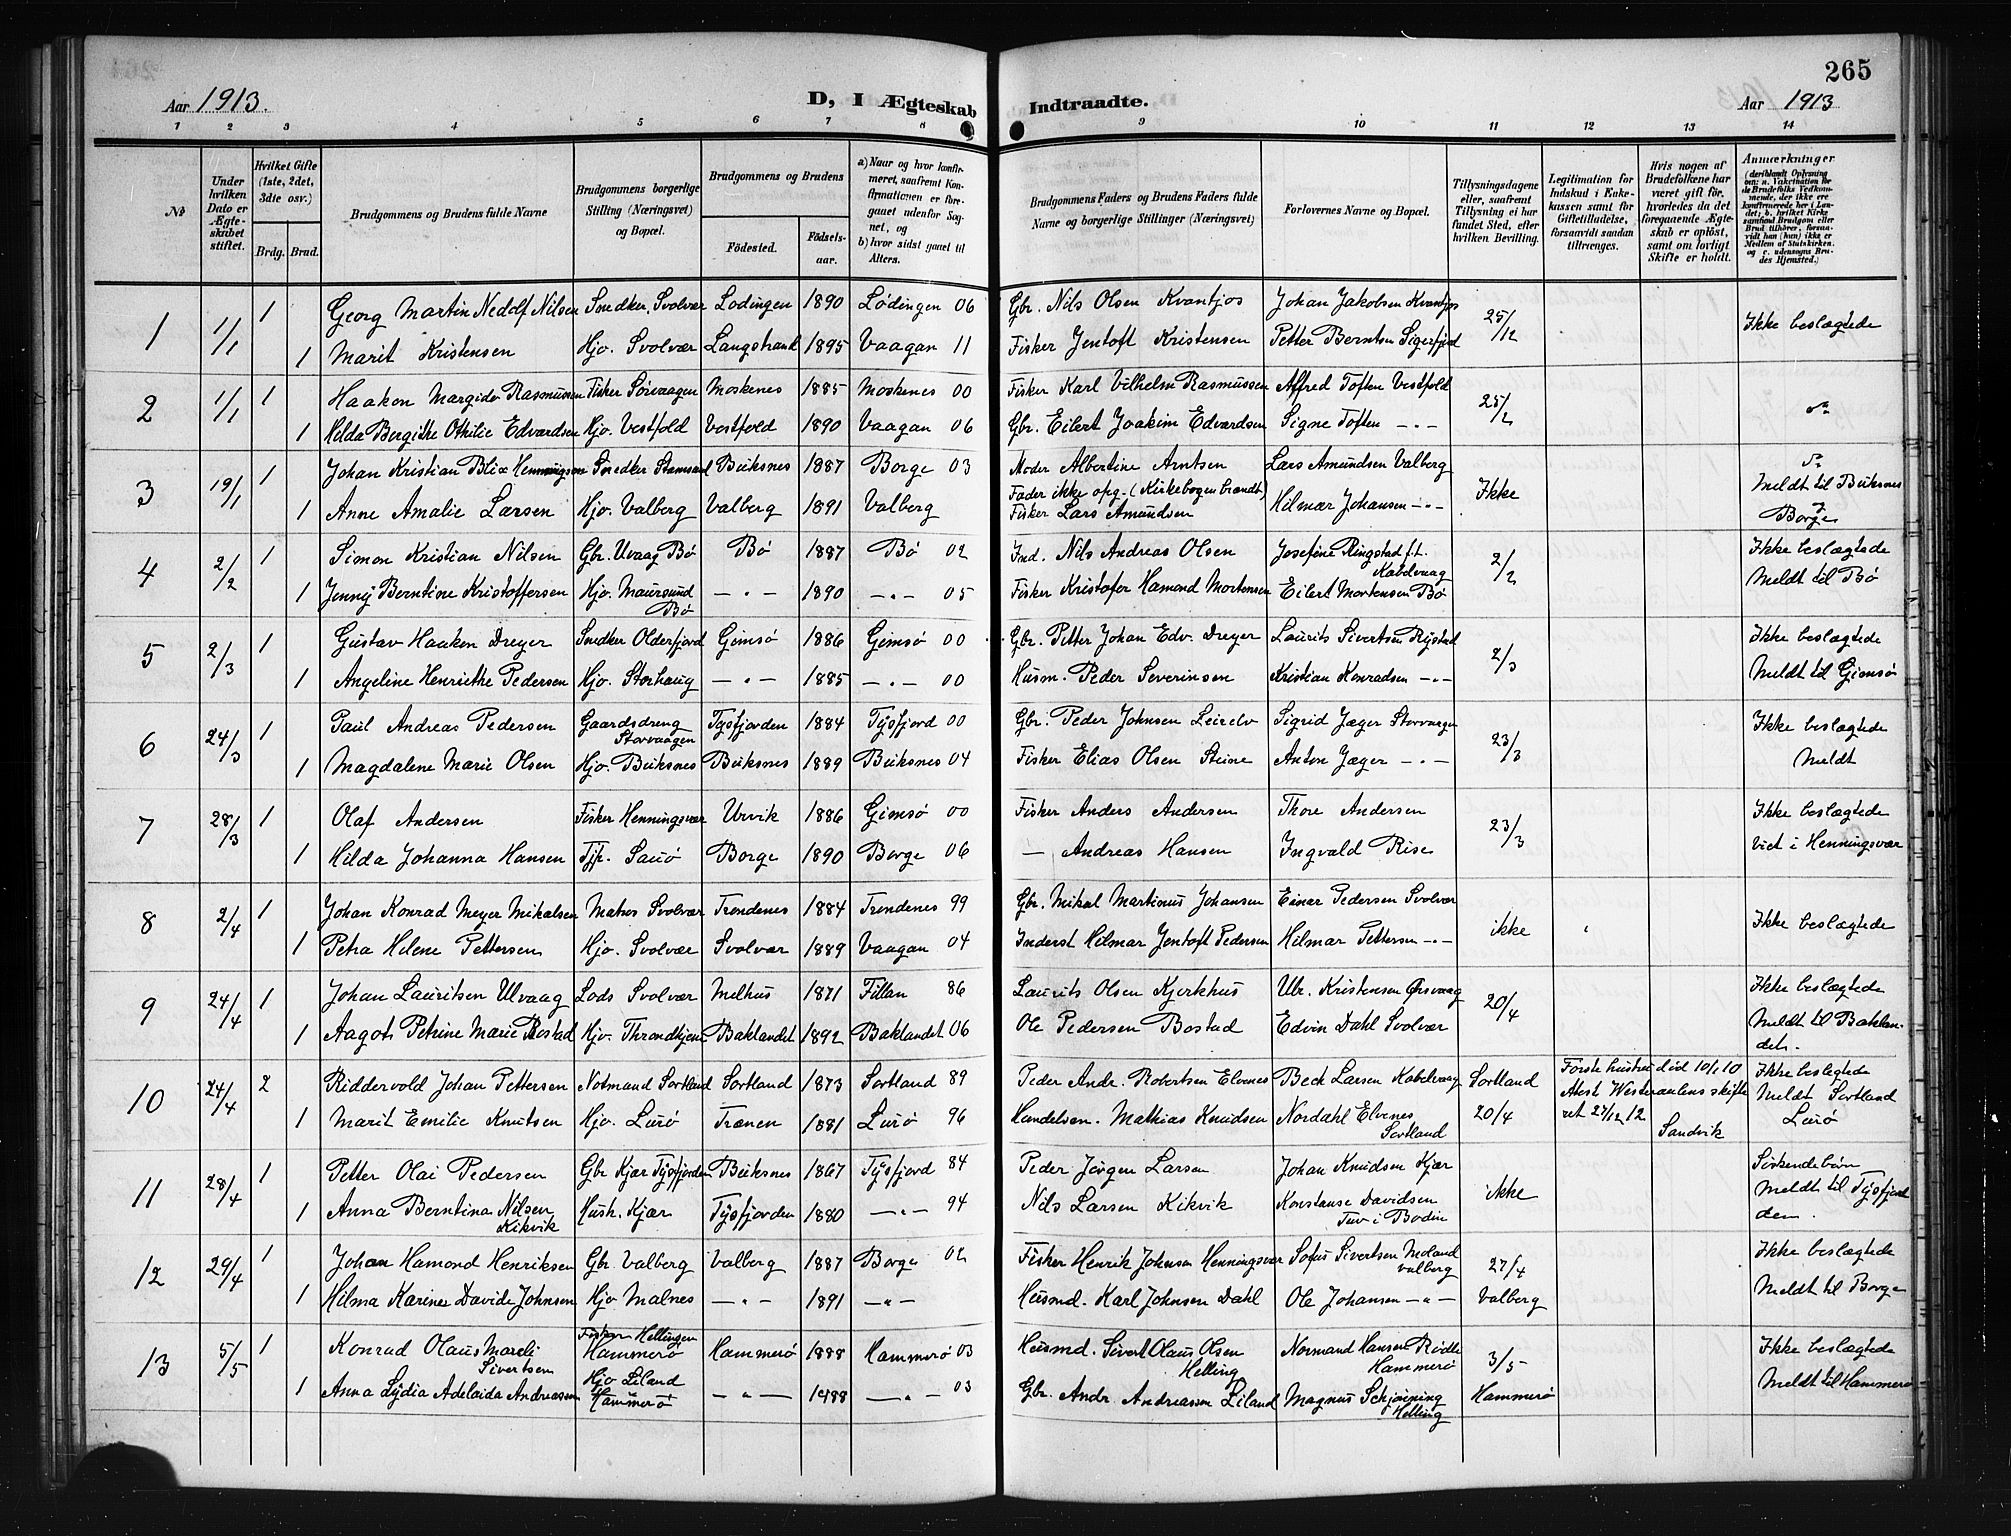 265
Aar 1913. D, I Ægteskab Indtraadte. Aar 1913
1 2 3 4 5 6 7 8 9 10 11 12 13 14
№
Under hvilken Dato er Ægteskabet stiftet.
Hvilket Gifte (1ste, 2det, 3die osv.)
Brdg. Brud.
Brudgommens og Brudens fulde Navne
Brudgommens borgerlige Stilling (Næringsvei) og Bopæl.
Brudgommens og Brudens
Födested. Födselsaar.
a) Naar og hvor konfirmeret, saafremt Konfirmationen er foregaaet udenfor Sognet, og b) hvor sidst gaaet til Alters.
Brudgommens Faders og Brudens Faders fulde Navne og borgerlige Stillinger (Næringsvei)
Forlovernes Navne og Bopæl.
Tillysningsdagene eller, saafremt Tillysning ei har fundet Sted, efter hvilken Bevilling.
Legitimation for Indskud i Enkekassen samt for Giftetilladelse, forsaavidt saadan tiltrænges.
Hvis nogen af Brudefolkene har været gift för, hvorledes da det foregaaende Ægteskab er oplöst, samt om lovligt Skifte er holdt.
Anmærkninger (deriblandt Oplysning om: a. Vakcination for de Brudefolks Vedkommende, der ikke ere konfirmerede her i Landet; b. hvilket Kirkesamfund Brudgom eller Brud tilhörer, forsaavidt han (hun) ikke er Medlem af Statskirken, og c. udensogns Brudes Hjemsted.)
1 1/1 1 Georg Martin Nedolf Nilsen Snedker Svolvær Lodingen 1890 Lødingen 06 Gbr. Nils Olsen Kvantjos Johan Jakobsen Kvantjos 25/12 Ikke beslægtede
1 Marit Kristensen Hjo. Svolvær Langstrand 1895 Vaagan 11 Fisker Jentoft Kristensen Petter Berntsen Sigerfjord
2 1/1 1 Haakon Margido Rasmussen Fisker Sörvaagen Moskenes 1885 Moskenes 00 Fisker Karl Vilhelm Rasmussen Alfred Toften Vestfold 25/2
1 Hilda Bergitte Othilie Edvardsen Hjo. Vestfold Vestfold 1890 Vaagan 06 Gbr. Eilert Joakim Edvardsen Signe Toften — " —
3 19/1 1 Johan Kristian Blix Henningsen Snedker Stamsund Buksnes 1887 Borge 03 Moder Albertine Arntsen Lars Amundsen Valberg Ikke Meldt til Buksnes
Fader ikke opg. (Kirkebogen brændt)
1 Anne Amalie Larsen Hjo. Valberg Valberg 1891 Valberg Fisker Lars Amundsen Hilmar Johansen — " — Borge
4 2/2 1 Simon Kristian Nilsen Gbr. Uvaag Bø Bø 1887 Bø 02 Ind. Nils Andreas Olsen Josefine Ringstad f.t. Kabelvaag 2/2 Ikke beslægtede
1 Jenny Berntine Kristoffersen Hjo. Maursund Bø — " — 1890 — " — 05 Fisker Kristofer Hamond Mortensen Eilert Mortensen Bø Meldt til Bø
5 2/3 1 Gustav Haakon Dreyer Snedker Olderfjord Gimsø 1886 Gimsø 00 Gbr. Petter Johan Edv. Dreyer Laurits Sivertsen Rystad 2/3 Ikke beslægtede
1 Angeline Henriette Pedersen Hjo. Storhaug — " — 1885 — " — 00 Husm. Peder Severinsen Kristian Konradsen — " — Meldt til Gimsø
6 24/3 1 Paul Andreas Pedersen Gaardsdreng Storvaagen Tysfjorden 1884 Tysfjord 00 Gbr. Peder Johnsen Leirelv Sigrid Jæger Storvaagen 23/3 Ikke beslægtede
1 Magdalene Marie Olsen Hjo. Buksnes Buksnes 1889 Buksnes 04 Fisker Elias Olsen Steine Anton Jæger — " — Meldt
7 28/3 1 Olaf Andersen Fisker Henningsvær Urvik 1886 Gimsø 00 Fisker Anders Andersen Thore Andersen 23/3 Ikke beslægtede
1 Hilda Johanna Hansen Tjp. Saurø Borge 1890 Borge 06 — Andreas Hansen Ingvald Rise Viet i Henningsvær
8 2/4 1 Johan Konrad Meyer Mikalsen Matros Svolvær Trondenes 1884 Trondenes 99 Gbr. Mikal Martinus Johansen Einar Pedersen Svolvær ikke Ikke beslægtede
1 Petra Helene Pettersen Hjo. Svolvær Svolvær 1889 Vaagan 04 Inderst Hilmar Jentoft Pedersen Hilmar Pettersen — " —
9 24/4 1 Johan Lauritsen Ulvaag Lods Svolvær Melhus 1871 Fillan 86 Laurits Olsen Kjerkhus Ulr. Kristensen Ørsvaag 20/4 Ikke beslægtede
1 Aagot Petrine Marie Bostad Hjo. Throndhjem Baklandet 1892 Baklandet 06 Ole Pedersen Bostad Edvin Dahl Svolvær Meldt til Baklandet.
10 24/4 2 Riddervold Johan Pettersen Notmand Sortland Sortland 1873 Sortland 89 Peder Andr. Robertsen Elvenes Beck Larsen Kabelvaag Sortland Første hustru död 10/1 10 Ikke beslegtede
Atest Westeraalens skifteret 27/12 12 Meldt Sortland
1 Marit Emilie Knutsen Hjo. Lurø Trænen 1881 Lurø 96 Handelsm. Mathias Knudsen Nordahl Elvenes Sortland 20/4 Sandvik Lurø
11 28/4 1 Petter Olai Pedersen Gbr Kjær Tysfjorden Buksnes 1867 Tysfjord 84 Peder Jörgen Larsen Johan Knudsen Kjær ikke Söskendebörn
1 Anna Berntina Nilsen Kikvik Hush. Kjær Tysfjorden 1880 — " — 94 Nils Larsen Kikvik Konstanse Davidsen Tuv i Bodin Meldt til Tysfjorden.
12 29/4 1 Johan Hamond Henriksen Gbr Valberg Valberg 1887 Borge 02 Fisker Henrik Johnsen Henningsvær Sofus Sivertsen Meland Valberg 27/4 Ikke beslægtede
1 Hilma Karine Davide Johnsen Hjo Malnes — " — 1891 — " — Husmd. Karl Johnsen Dahl Ole Johansen — " — Valberg Meldt til Borge
13 5/5 1 Konrad Olaus Mareli Sivertsen Fisker Hellingen Hammerø Hammerø 1888 Hammerø 03 Husmd. Sivert Olaus Olsen Helling Normand Hansen Hammerø 3/5 Ikke beslægtede
1 Anna Lydia Adelaida Andreassen Hjo Liland Hammerø — " — 1888 — " — 03 Gbr. Andr Andreassen Liland Magnus Schjönning Helling Hammerø Meldt til Hammerø